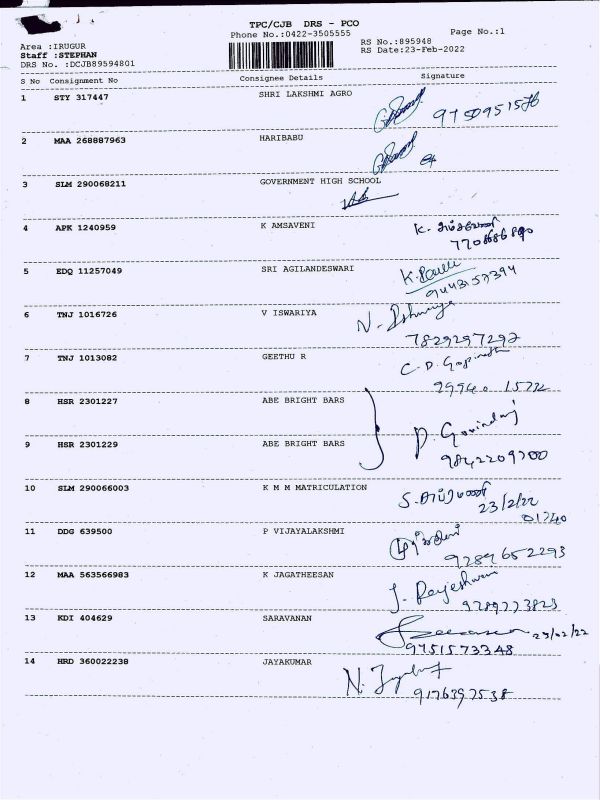 TPC/CJB DRS - PCO
Phone No.:0422-3505555
Page No.:1
Area :IRUGUR
RS No.:895948
Staff :STEPHAN
RS Date:23-Feb-2022
DRS No. :DCJB89594801
S No Consignment No Consignee Details Signature
1 STY 317447 SHRI LAKSHMI AGRO
2 MAA 268887963 HARIBABU
3 SLM 290068211 GOVERNMENT HIGH SCHOOL
4 APK 1240959 K AMSAVENI
5 EDQ 11257049 SRI AGILANDESWARI
9443157394
6 TNJ 1016726 V ISWARIYA
7829297292
7 TNJ 1013082 GEETHU R
C. D. Gopinath
8 HSR 2301227 ABE BRIGHT BARS
P. Govindaraj
9 HSR 2301229 ABE BRIGHT BARS
9842209700
10 SLM 290066003 K M M MATRICULATION
23/2/22
11 DDG 639500 P VIJAYALAKSHMI
9289652293
12 MAA 563566983 K JAGATHEESAN
J. Rajeshwari
9789773823
13 KDI 404629 SARAVANAN
23/02/22
9751573348
14 HRD 360022238 JAYAKUMAR
9176397538